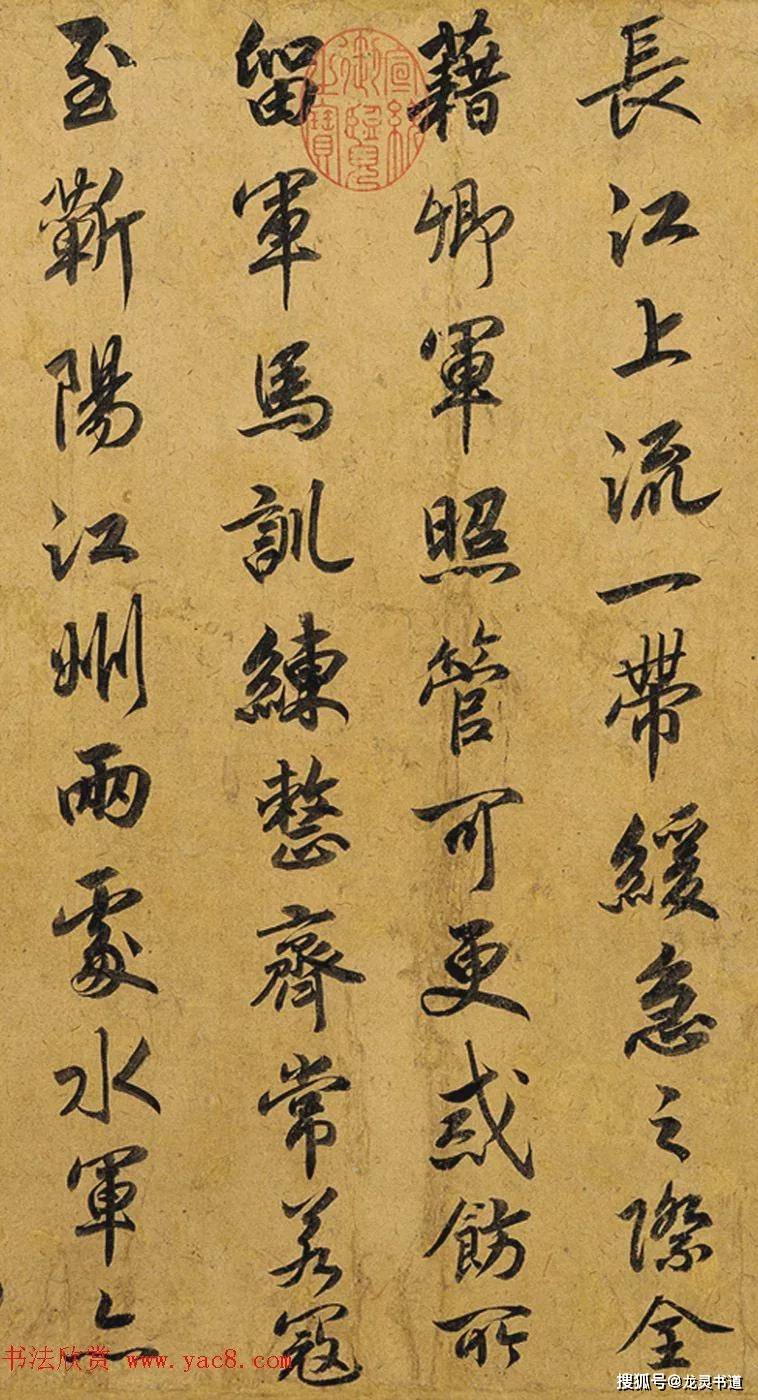 長江上流一帶緩急之際全
藉卿軍照管可更戒飭所
留軍馬訓練整齊常若寇
至蘄陽江州兩處水軍亦
宣統御覽之寶
书法欣赏 www.yac8.com
搜狐号@龙灵书道